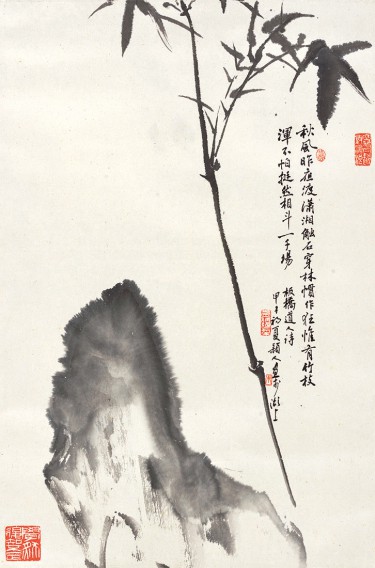 秋風昨夜渡瀟湘觸石穿林慣作狂惟有竹枝
渾不怕挺然相斗一千場
板橋道人詩
甲子初夏穎人畫於湖上